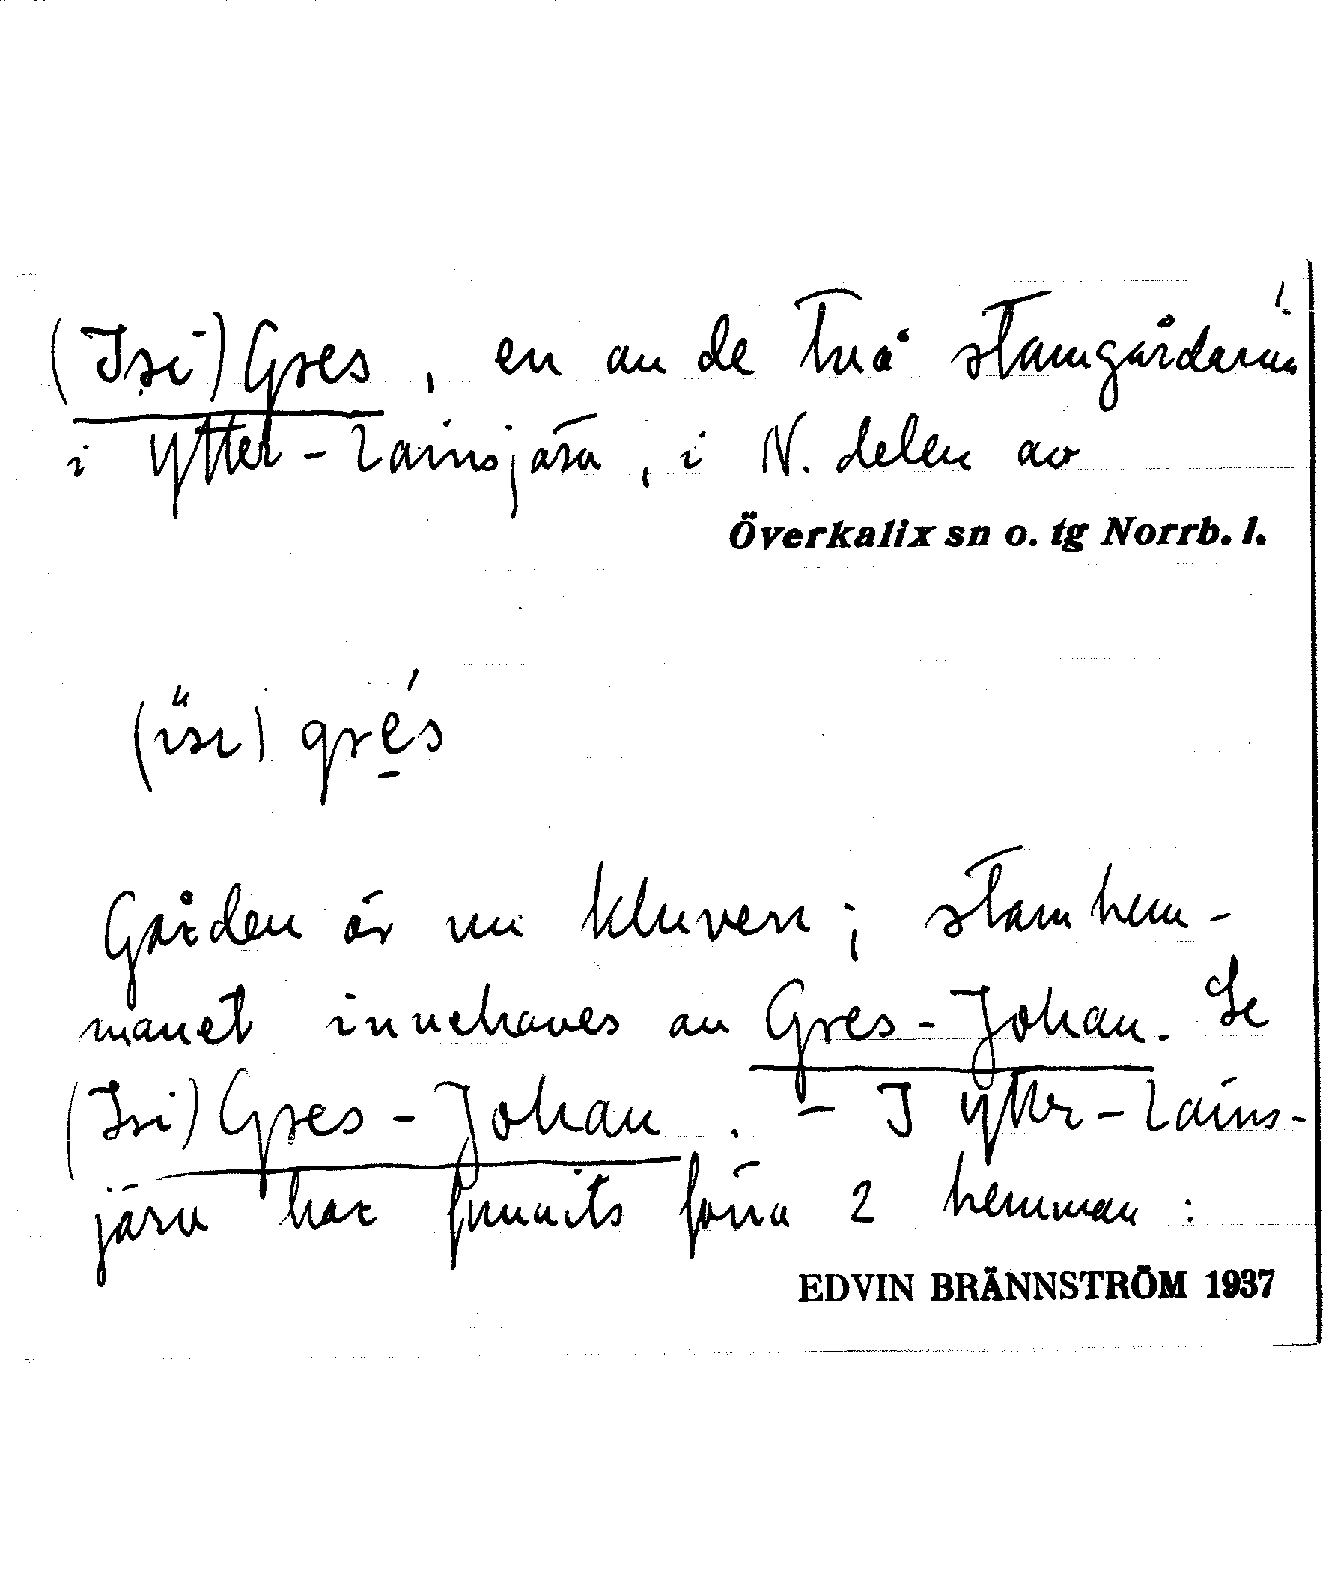 (Isi)Gres, en av de två stamgårdarna
i Ytter-Lainsjärv, i N. delen av
Överkalix sn o. tg Norrb. l.
(isi) gres
Gården är nu kluven; stamhem-
manet innehaves av Gres-Johan. Se
(Isi)Gres-Johan. - I Ytter-Lains-
järv har funnits förra 2 hemman:
EDVIN BRÄNNSTRÖM 1937